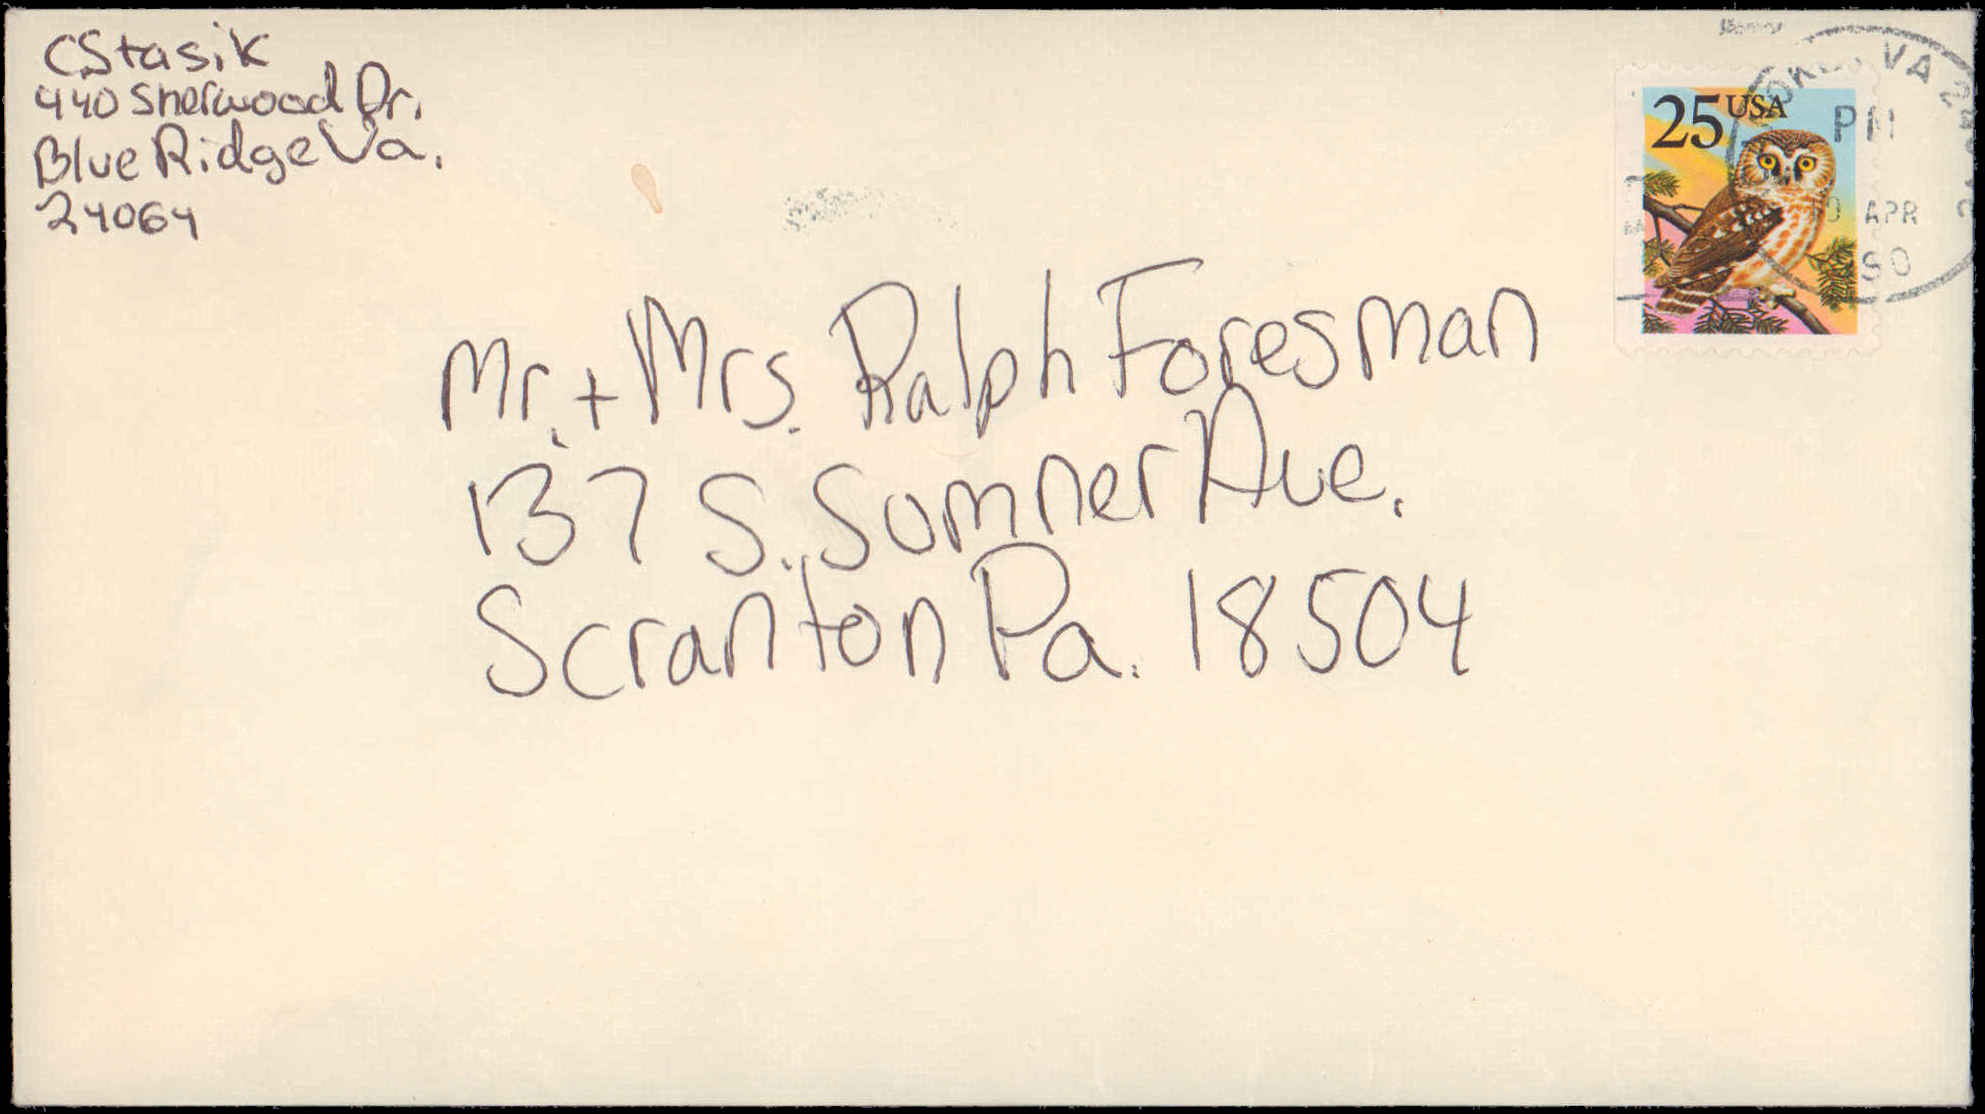 CStasik
440 Sherwood Dr.
Blue Ridge Va.
24064
25 USA
VA
PM
APR
90
Mr. + Mrs. Ralph Foresman
137 S. Sumner Ave.
Scranton Pa. 18504